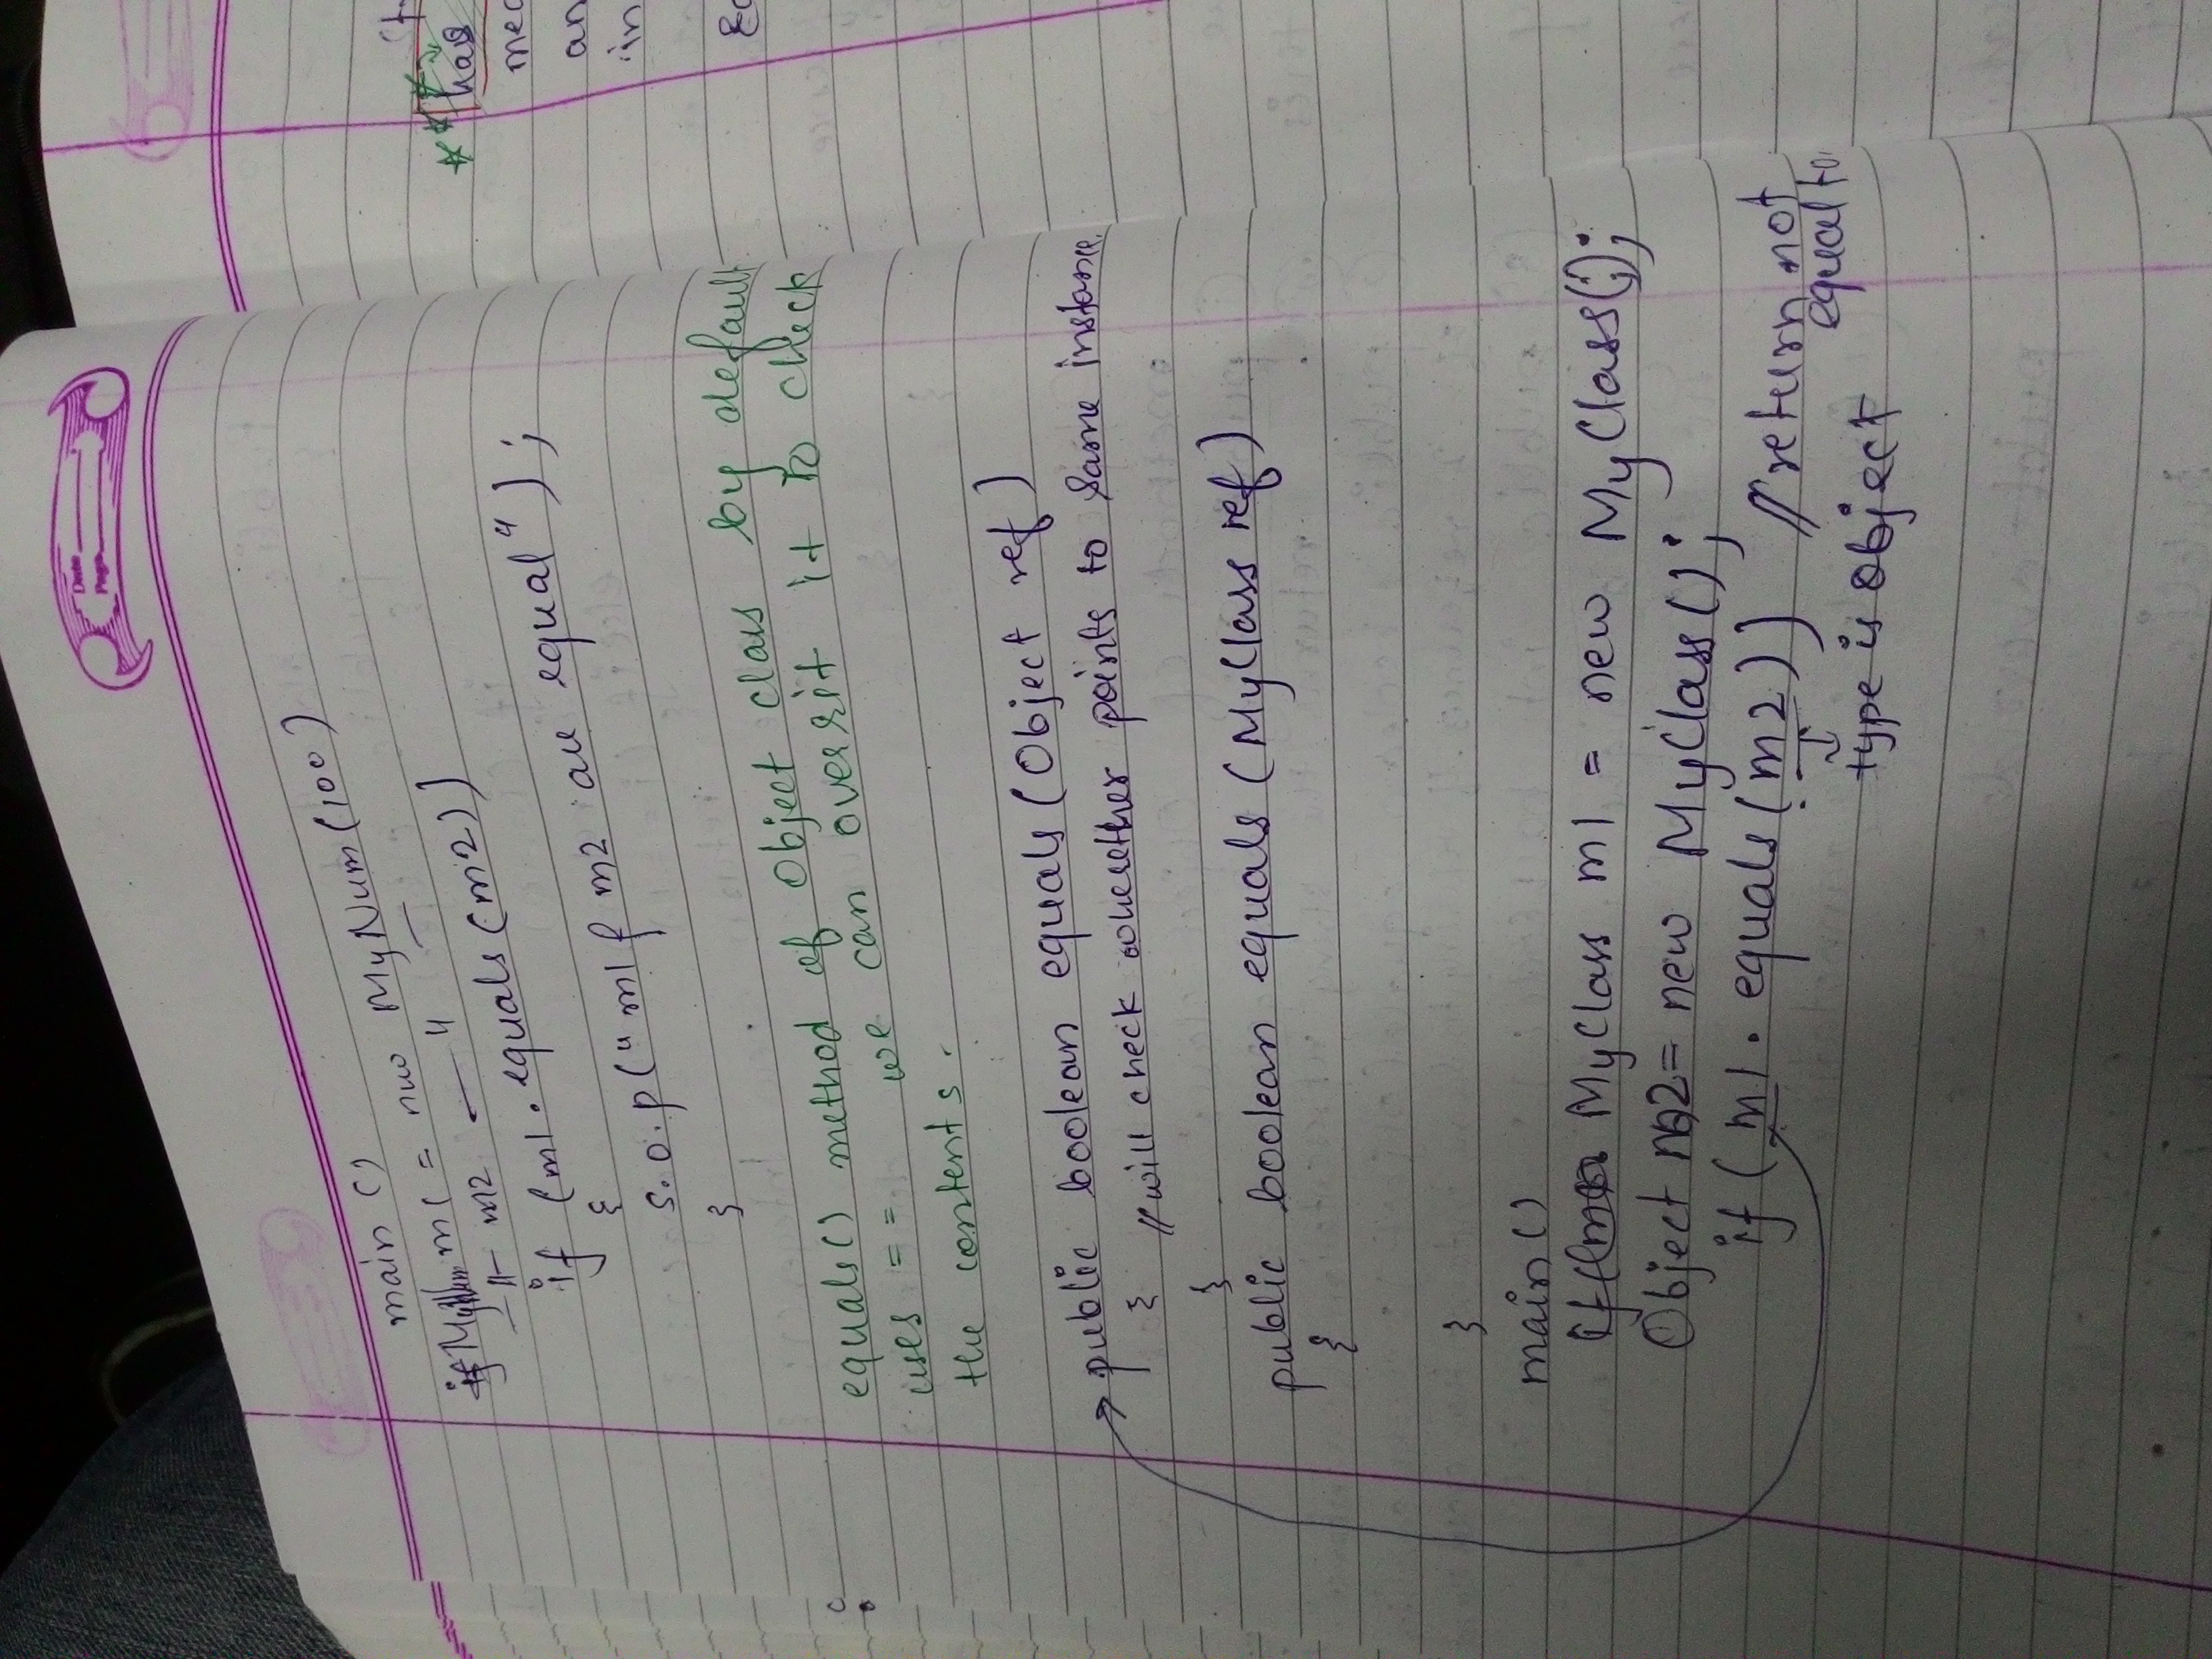 Date
Page
main ()
if MyNum m1 = new MyNum (100)
–〃– m2 — 〃 —
if (m1.equals(m2))
{
S.o.p("m1 & m2 are equal");
}
equals() method of Object class by default
uses == we can overrit it to check
the contents.
public boolean equals (Object ref)
{ //will check wheether points to same instance.
}
public boolean equals (MyClass ref)
{
}
main ()
MyClass m1 = new MyClass();
Object m2 = new MyClass();
if (m1.equals(m2)) //return not
equal to
type is object
has
an
in